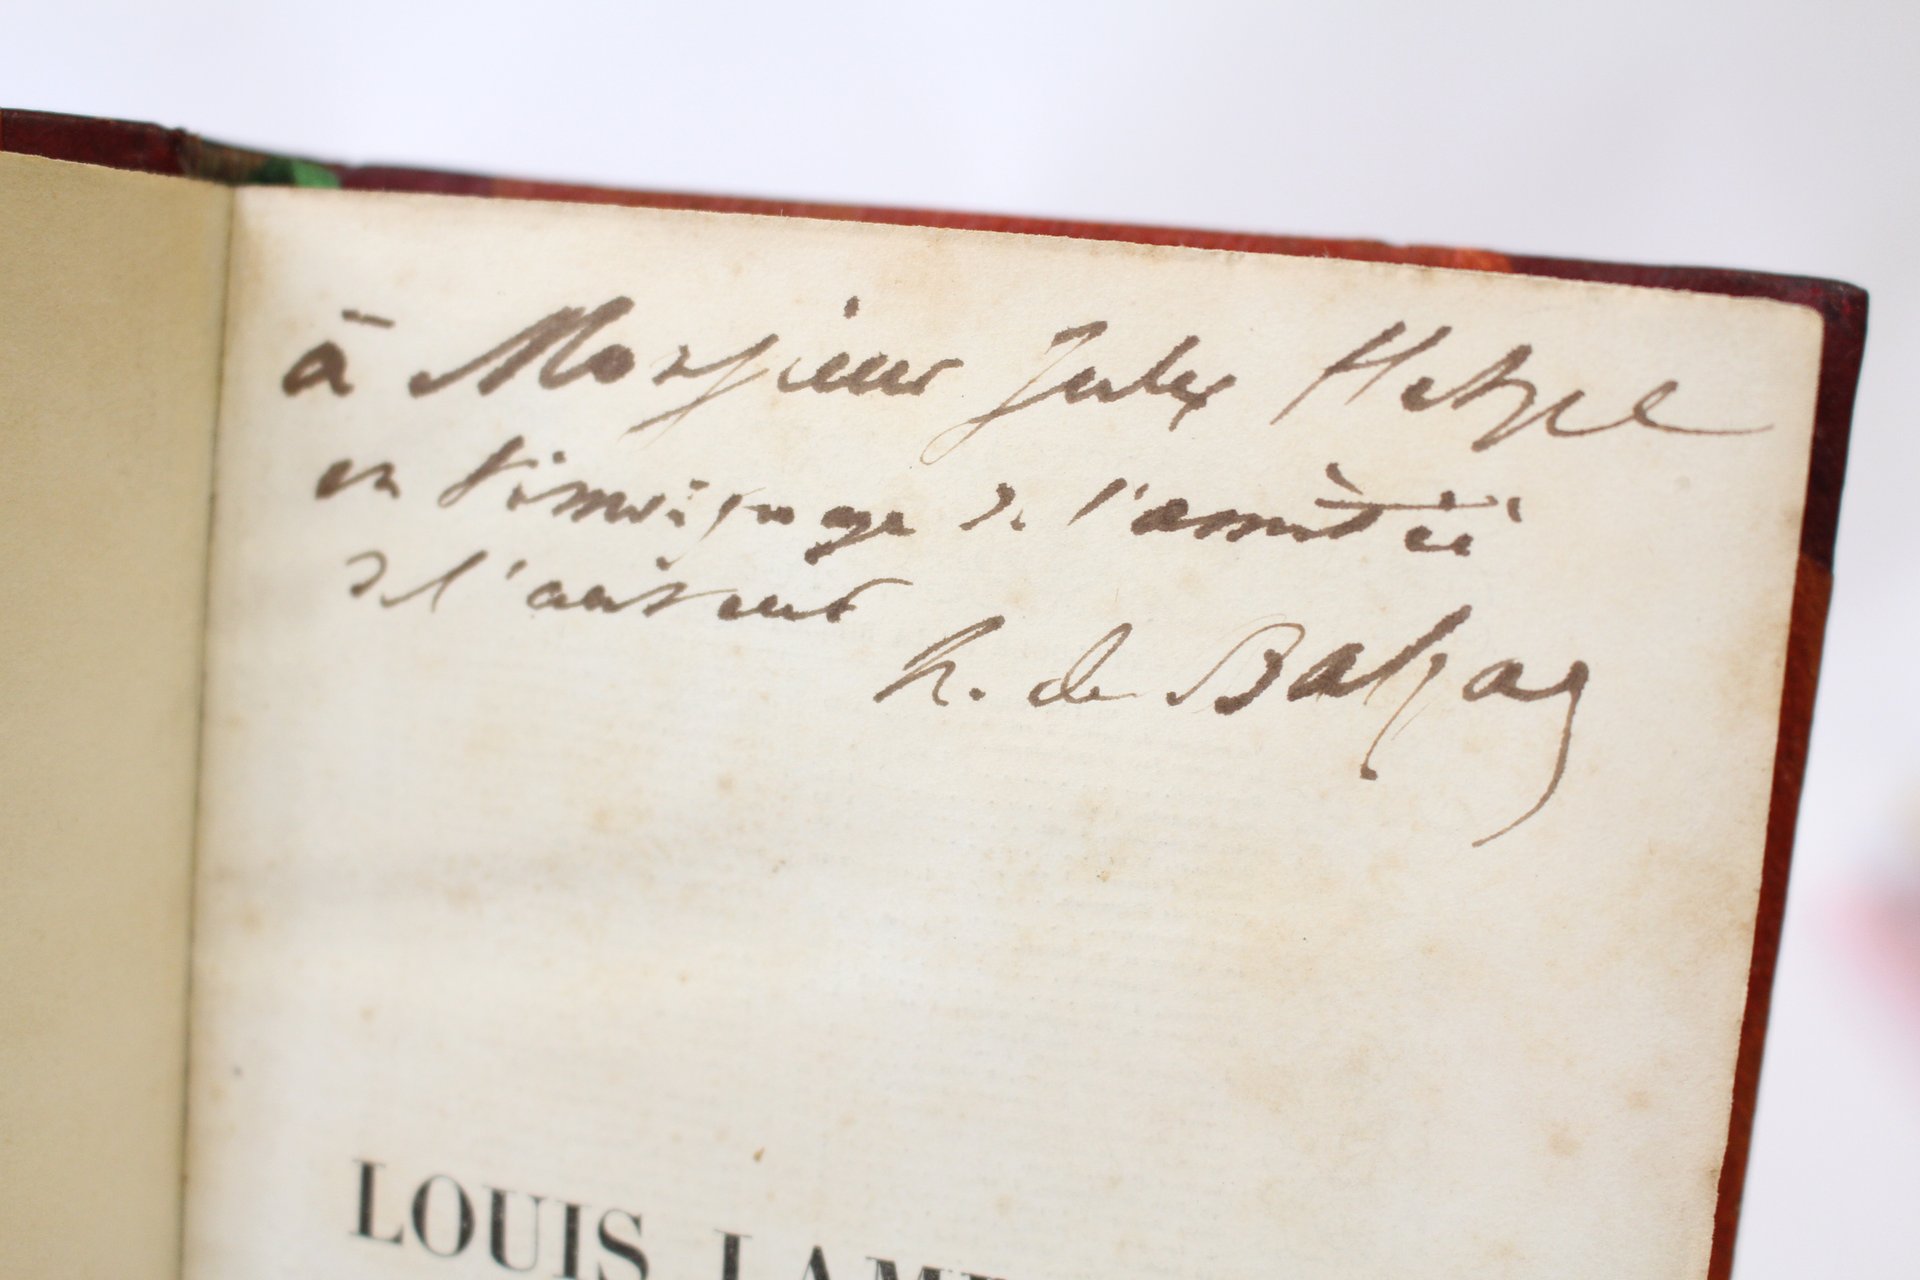 à Monsieur Jules Hetzel
en témoignage de l'amitié
de l'auteur
h. de Balzac
LOUIS LAM